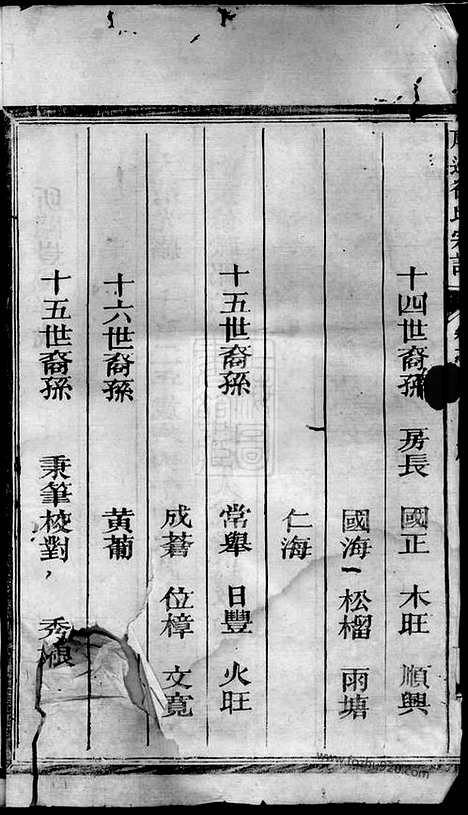 十四世裔孫 房長 國正 木旺 順興
國海 松榴 雨塘
仁海
十五世裔孫 常舉 日豐 火旺
成蒼 位樟 文寬
十六世裔孫 黃葡
十五世裔孫 秉筆校對 秀
www.tcshu920.com